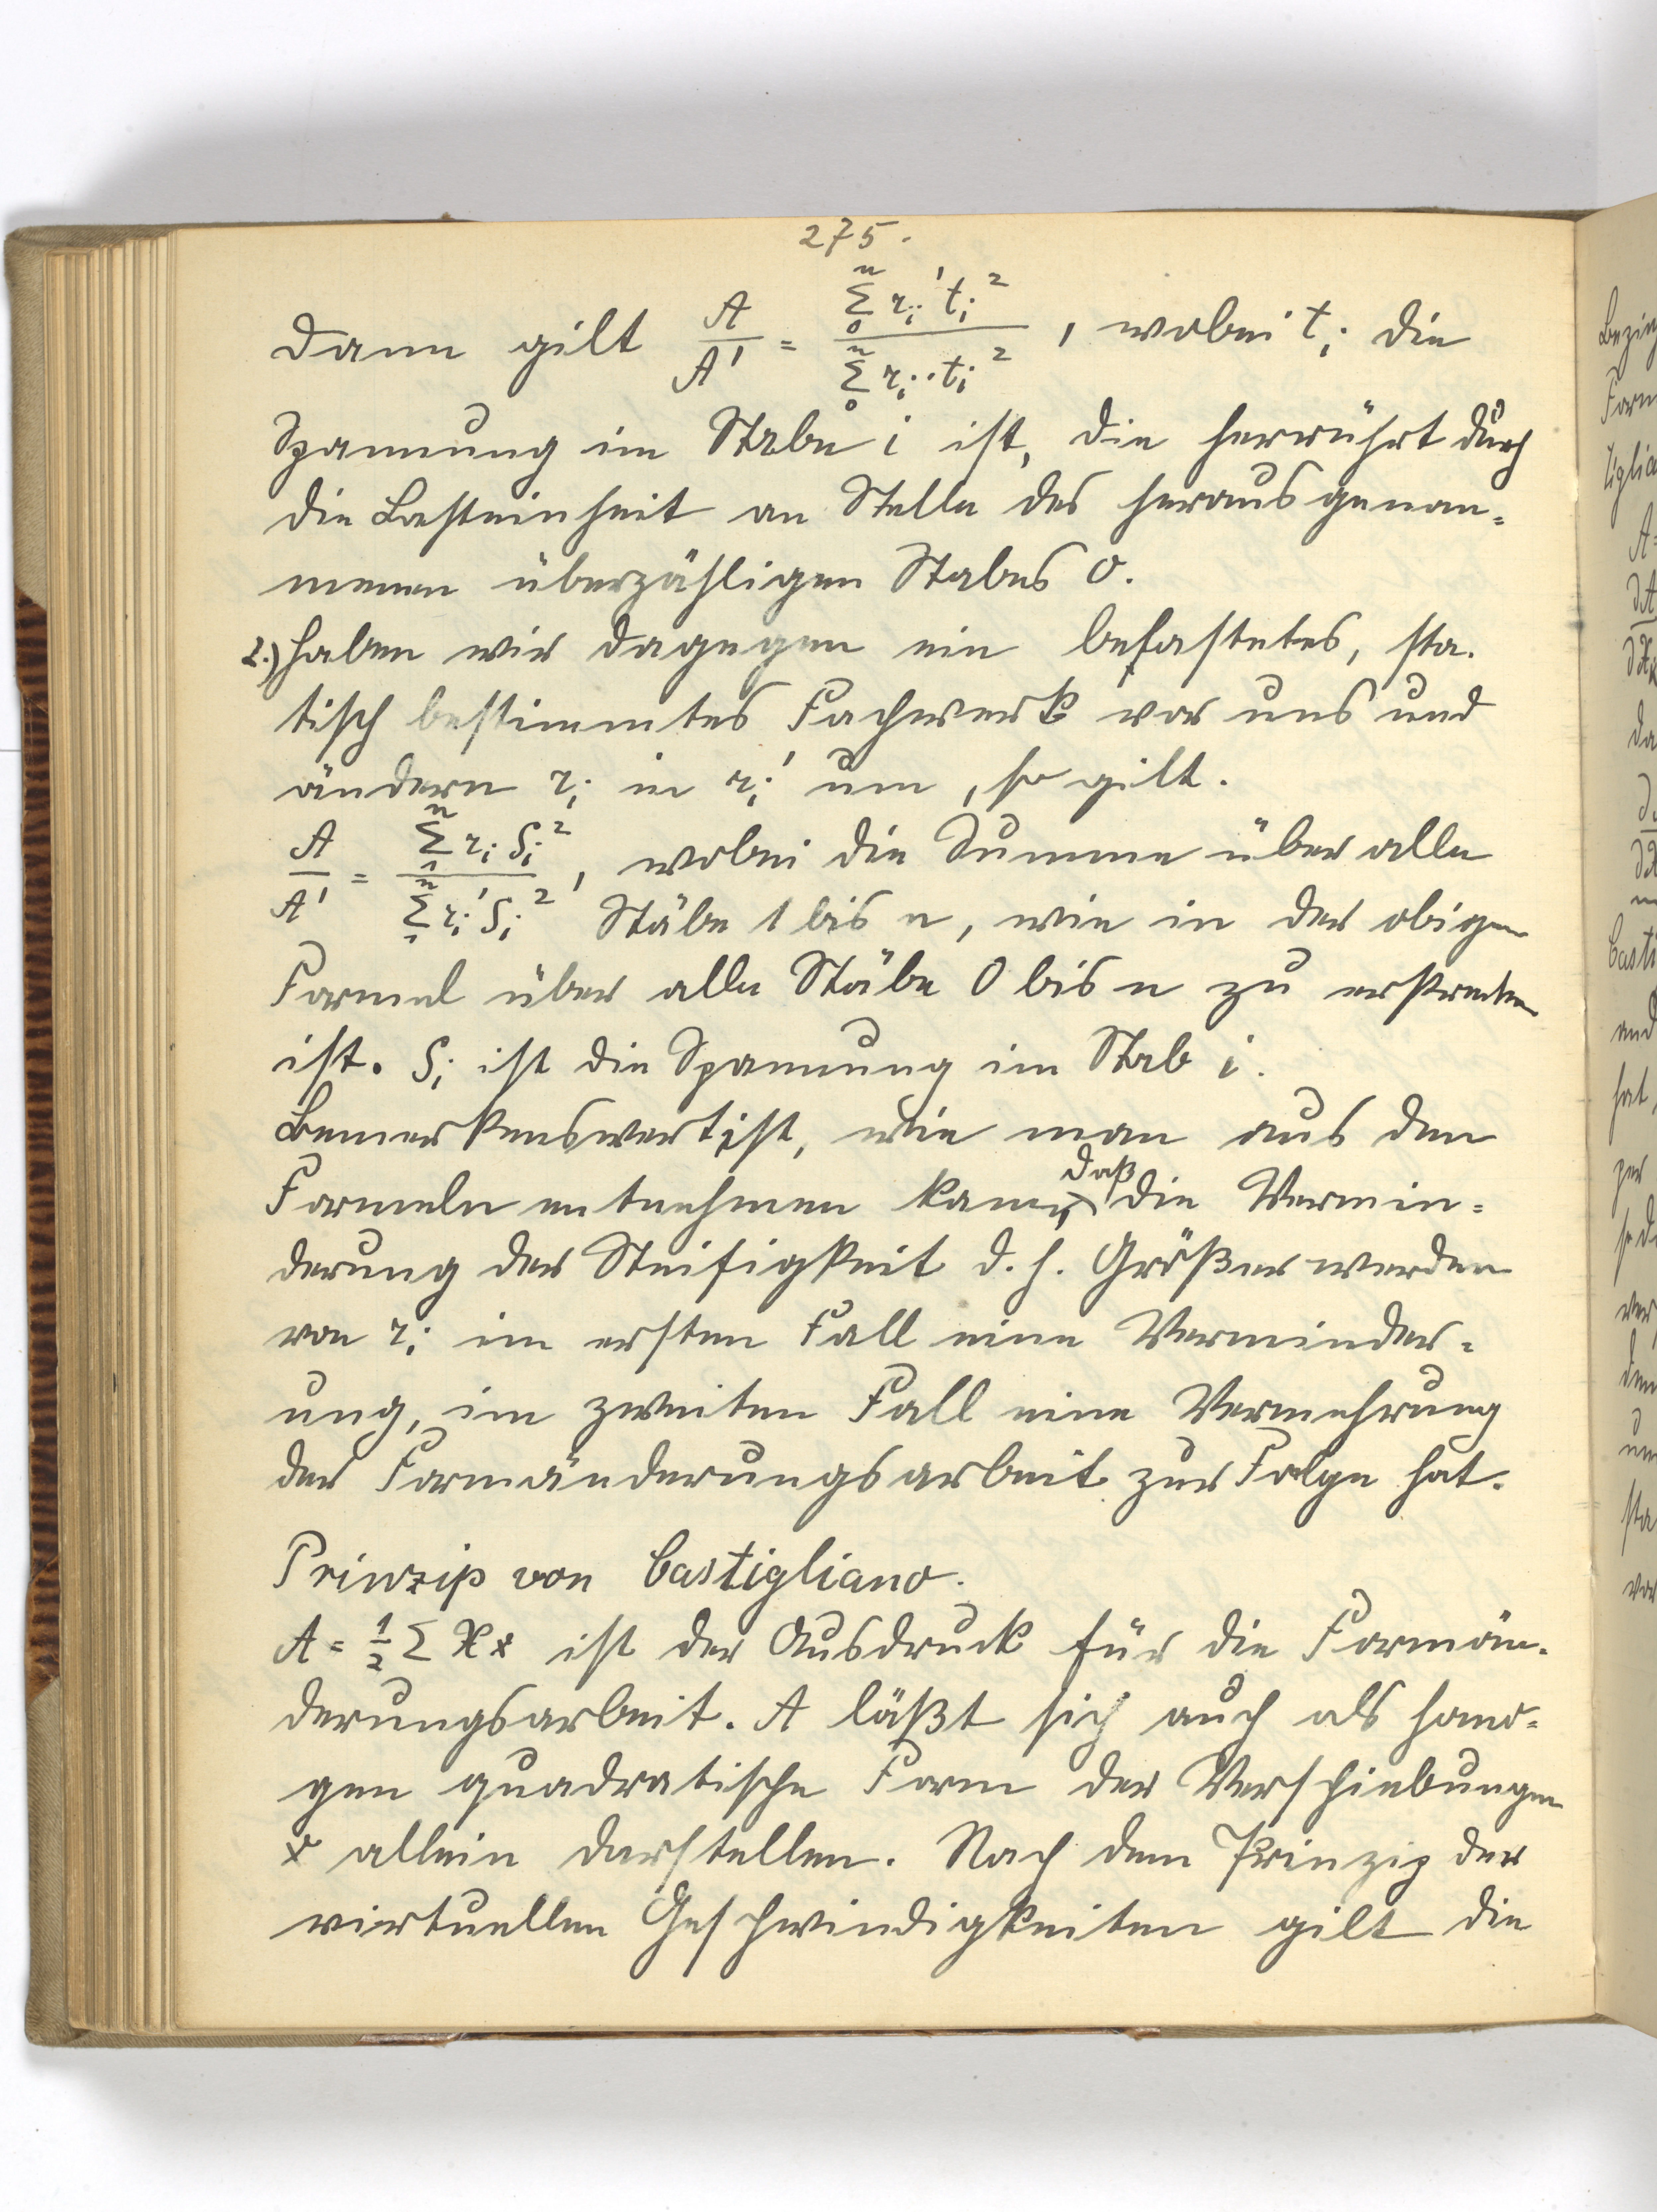 275.
Dann gilt A/A' = Σ₀ⁿ rᵢ' tᵢ² / Σ₀ⁿ rᵢ · tᵢ² , wobei tᵢ die
Spannung im Stabe i ist, die herrührt durch
die Lasteinheit an Stelle des herausgenom=
menen überzähligen Stabes 0.
2.) Haben wir dagegen ein belastetes, sta-
tisch bestimmtes Fachwerk vor uns und
ändern rᵢ in rᵢ' um, so gilt.
A/A' = Σ₁ⁿ rᵢ Sᵢ² / Σ₁ⁿ rᵢ' Sᵢ² , wobei die Summe über alle
Stäbe 1 bis n, wie in der obigen
Formel über alle Stäbe 0 bis n zu erstrecken
ist. Sᵢ ist die Spannung im Stab i.
Bemerkenswert ist, wie man aus den
Formeln entnehmen kann, daß die Vermin=
derung der Steifigkeit d. h. Größer werden
von rᵢ im ersten Fall eine Verminder=
ung, im zweiten Fall eine Vermehrung
der Formänderungsarbeit zur Folge hat.
Prinzip von Castigliano.
A = 1/2 Σ X x ist der Ausdruck für die Formän-
derungsarbeit. A läßt sich auch als homo=
gen quadratische Form der Verschiebungen
x allein darstellen. Nach dem Prinzip der
virtuellen Geschwindigkeiten gilt die